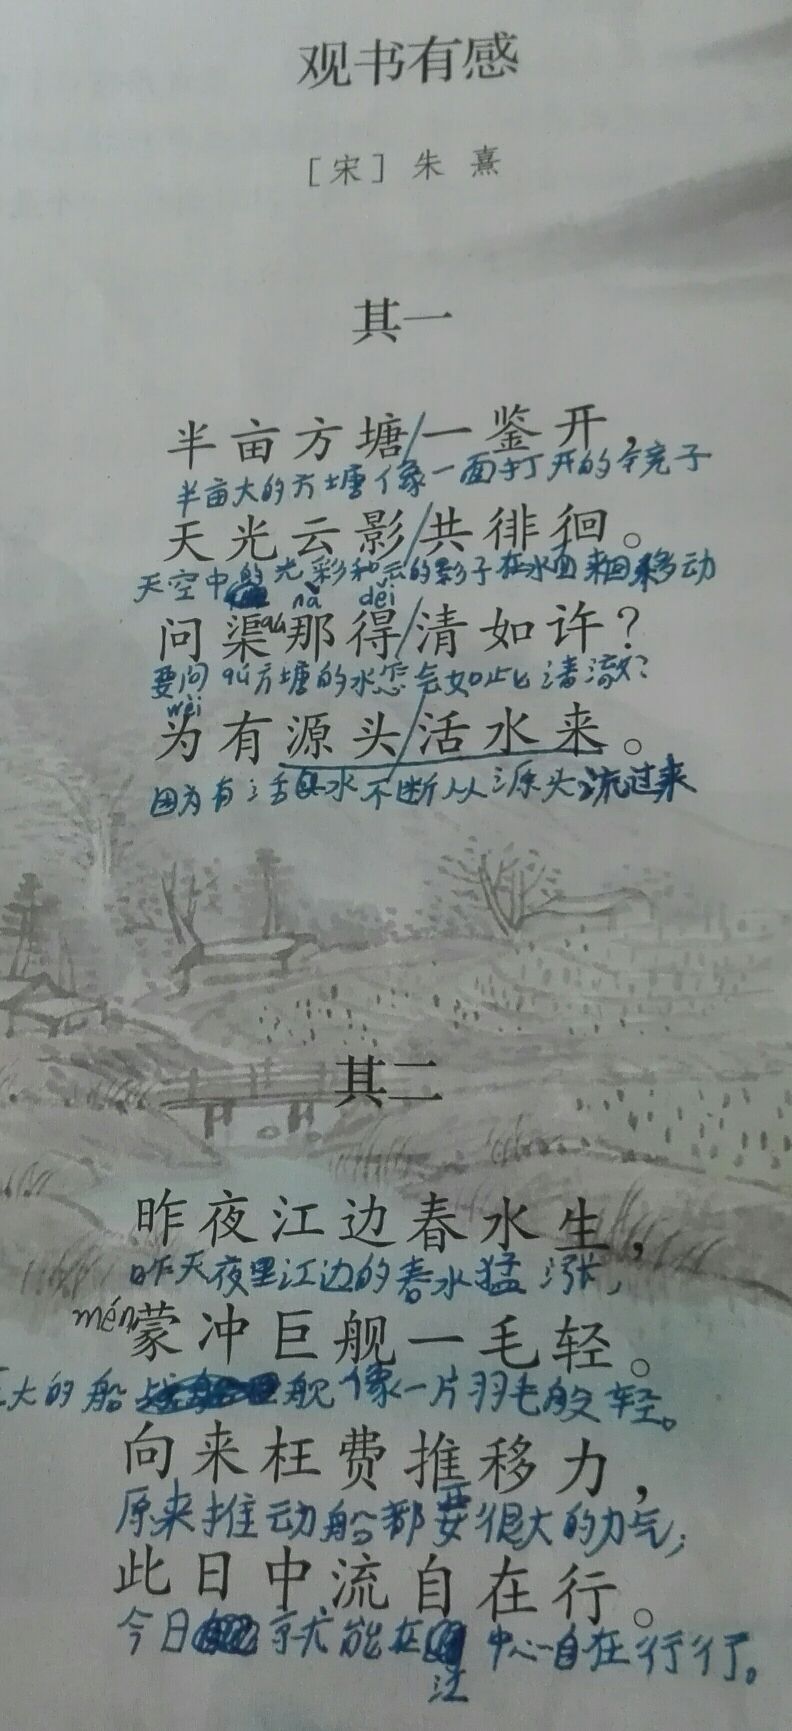 观书有感
[宋] 朱熹
其一
半亩方塘/一鉴开，
半亩大的方塘像一面打开的镜子
天光云影/共徘徊。
天空中光彩和云的影子在水面来回移动
nà děi
问渠qú那得/清如许？
要问方塘的水怎么如此清澈？
wèi
为有源头/活水来。
因为有活水不断从源头流过来
其二
昨夜江边春水生，
昨天夜里江边的春水猛涨，
méng
蒙冲巨舰一毛轻。
大的船舰像一片羽毛般轻。
向来枉费推移力，
原来推动船都要很大的力气；
此日中流自在行。
今日就能在江中心自在行行。